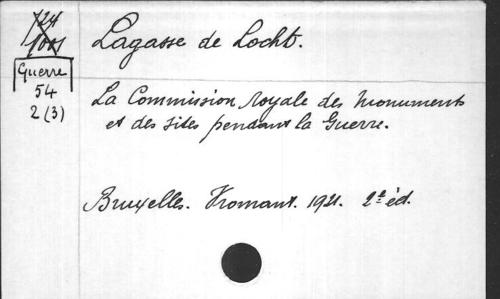 Lagasse de Locht.
Guerre
54
2 (3)
La Commission Royale des Monuments
et des Sites pendant la Guerre.
Bruxelles. Vromant. 1921. 2e éd.